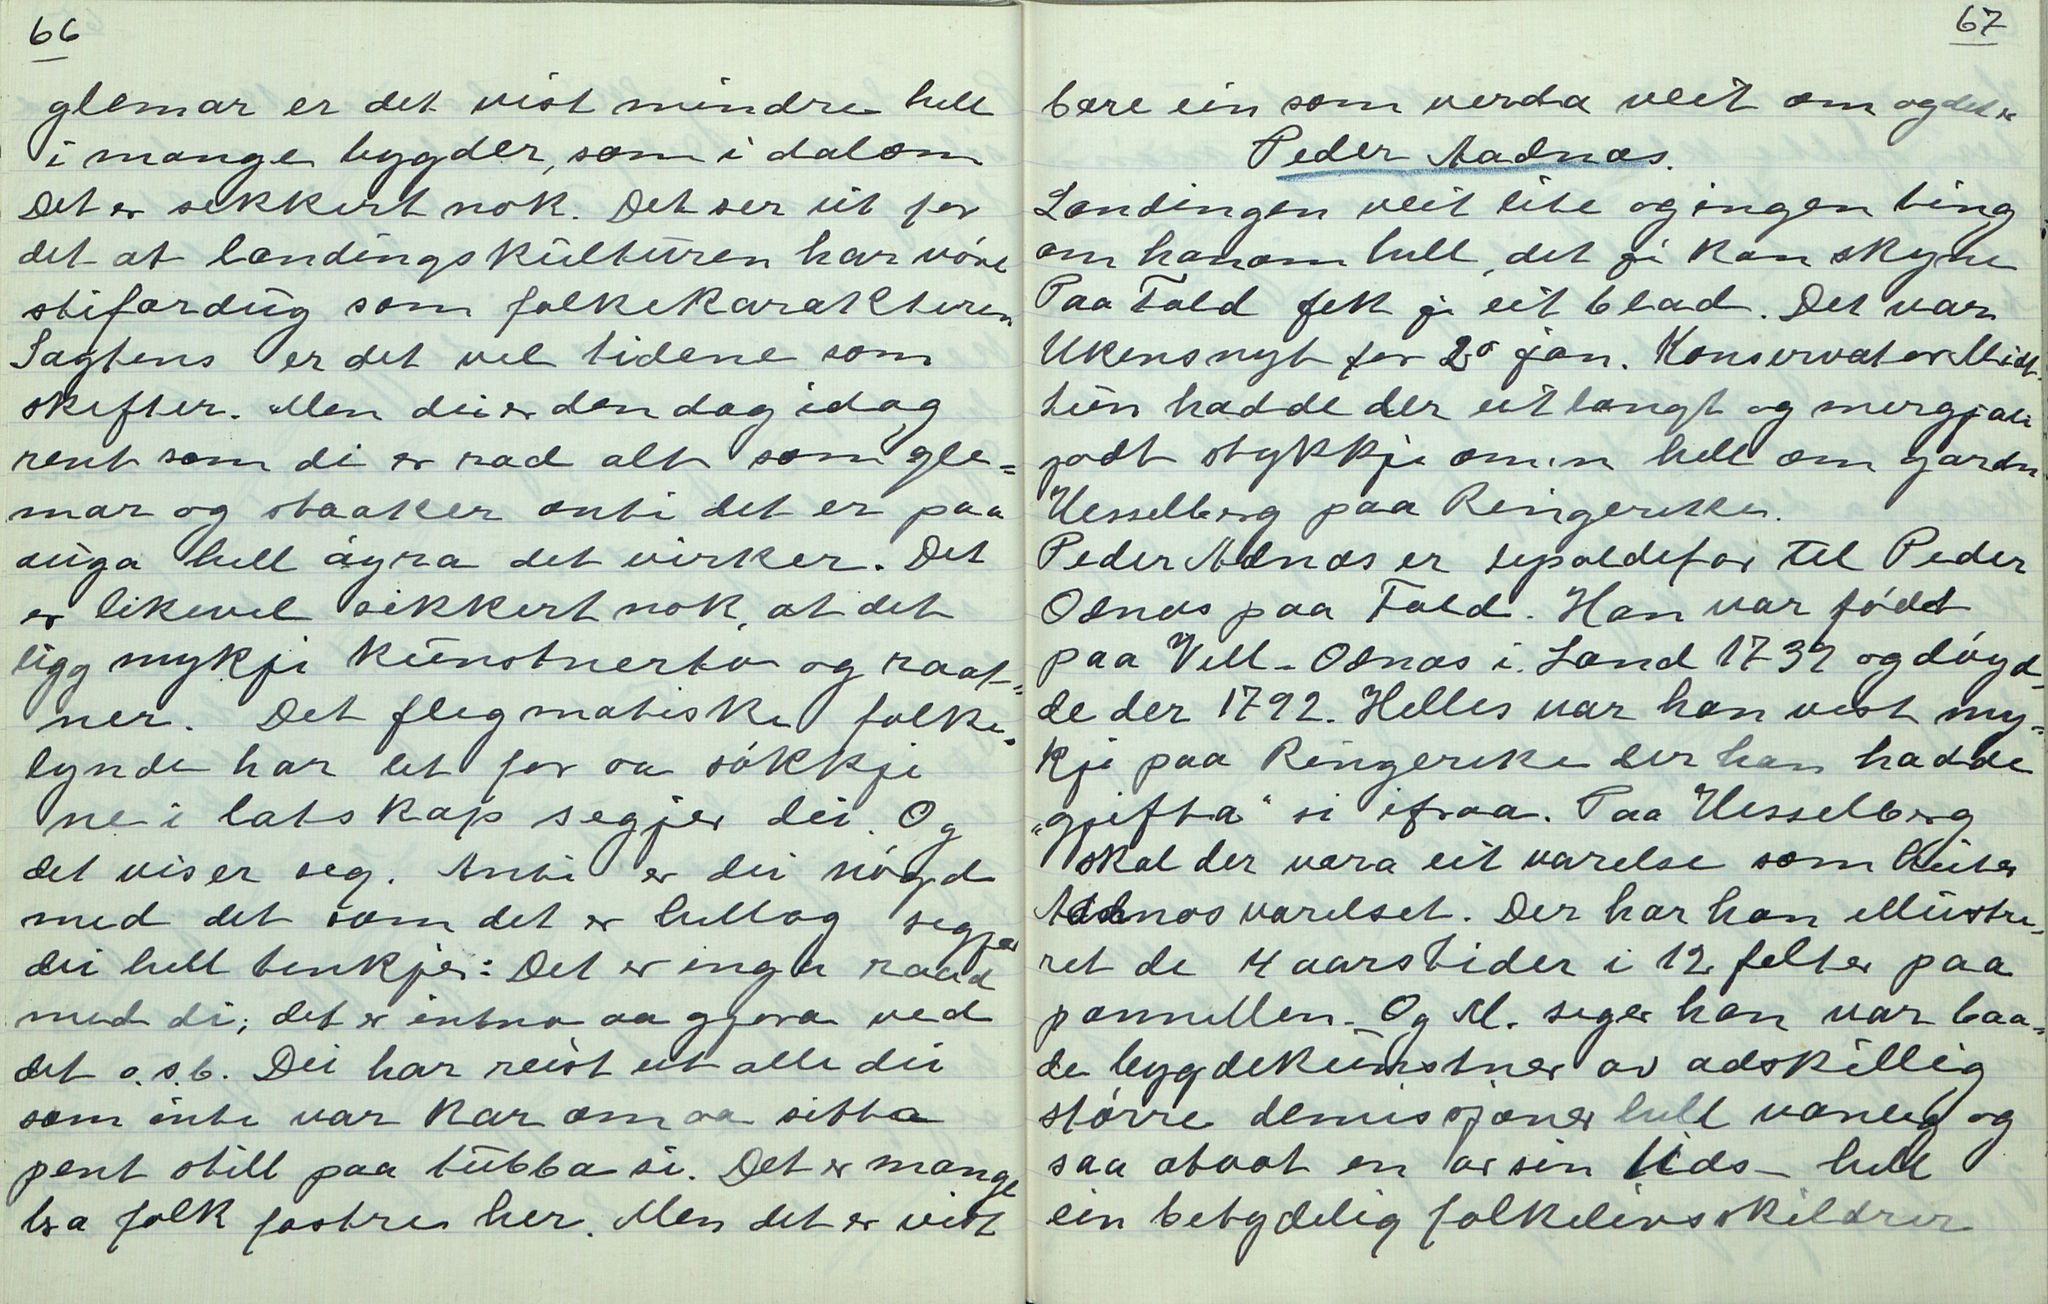 66
glæmar er det vist mindre hell
i mange bygder, som i dalom
Det er sikkert nok. Det ser ut for
det at landingskulturen har vóre
stifærdug som folkekarakteren
Sagtens er det vel tidene som
skifter. Men dei er den dag idag
rent som di er rad alt som glæ=
mar og staaker anti det er paa
auga hell öyra det virker. Det
er likevel sikkert nok, at det
ligg mykji kunstnerto og raat=
ner. Det flegmatiske folke=
lynde har let for aa sókkji
ne i latskap segjer dei. Og
det viser seg. Anti er dei nógd
med det som det er hellog segjer
dei hell tenkjer: Det er inga raad
med di; det er intno aa gjera ved
det o.s.b. Dei har reist ut alle dei
som inte var kar om aa sitta
pent still paa tubba si. Det er mange
bra folk fostre her. Men det er vist
67
bære ein som verda veit om og det er
Peder Aadnæs.
Landingen veit lite og ingen ting
om hanom hell, det ji kan skyne
Paa Fald fek ji eit blad. Det var
Ukens nyt for 20 jan. Konservator Midt-
tun hadde der eit langt og mergjali
godt stykkji om'n hell om garden
Hesselberg paa Ringerike.
Peder Adnæs er tipoldefar til Peder
Odnæs paa Fald. Han var födt
paa Vell-Odnæs i Land 1739 og döyd-
de der 1792. Helles var han vist my=
kji paa Ringerike der han hadde
„gjifta" si ifraa. Paa Hesselberg
skal der vara eit værelse som heiter
Adnæsværelset. Der har han illustre=
ret de 4 aarstider i 12 felter paa
pannellen. Og M. seger han var baa=
de bygdekunstner av adskillig
större demissjoner hell vanleg og
saa atvat en av sin tids hell
ein betydelig folkelivsskildrer